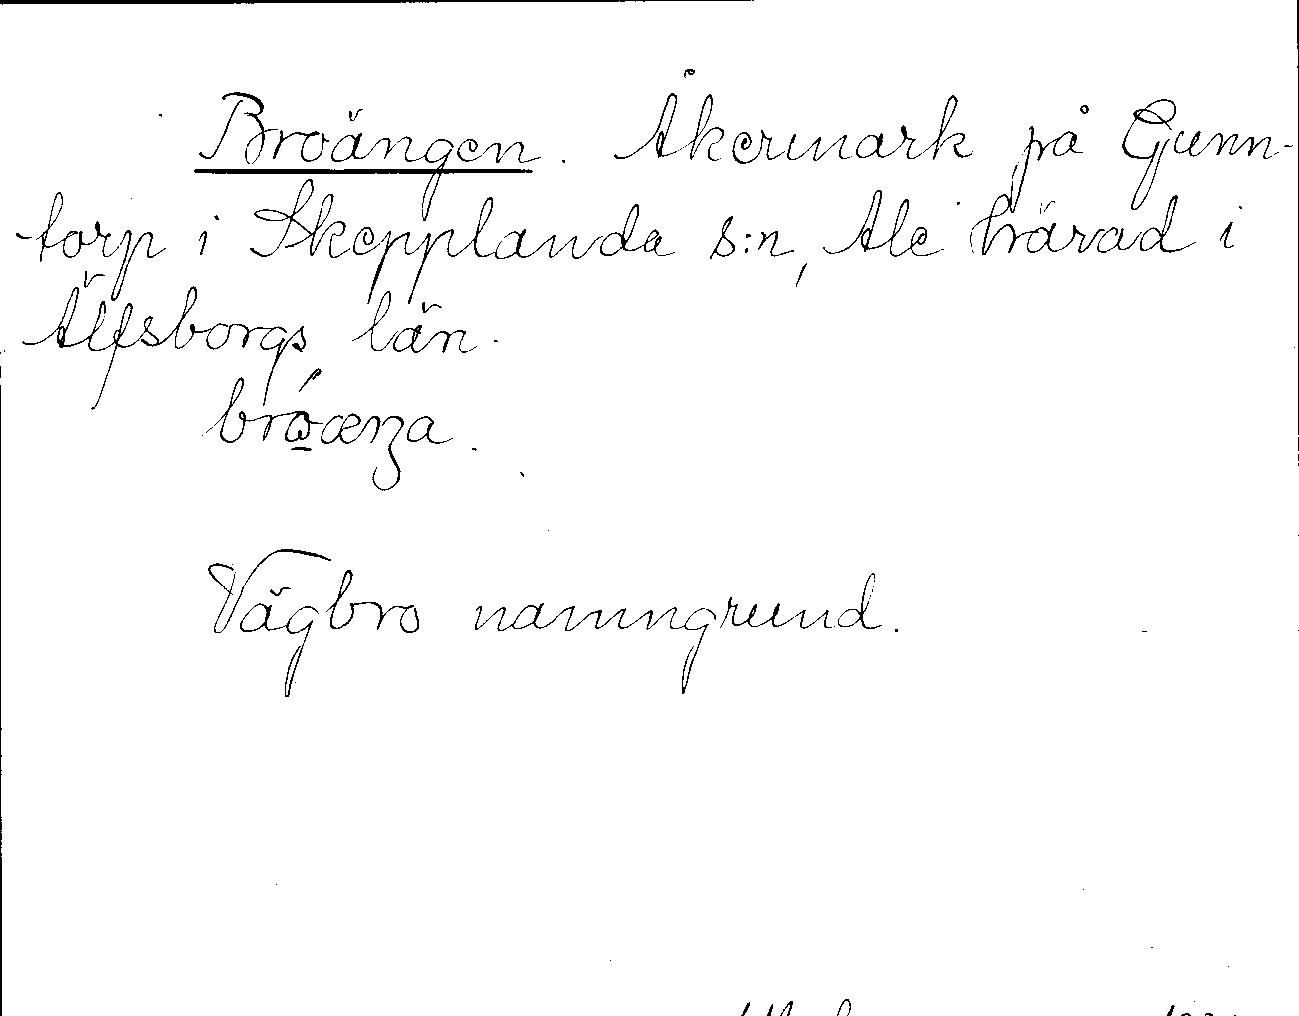 Broängen. Åkermark på Gunn-
torp i Skepplanda s:n, Ale härad i
Älfsborgs län.
brώ̲æŋa.
Vägbro namngrund.